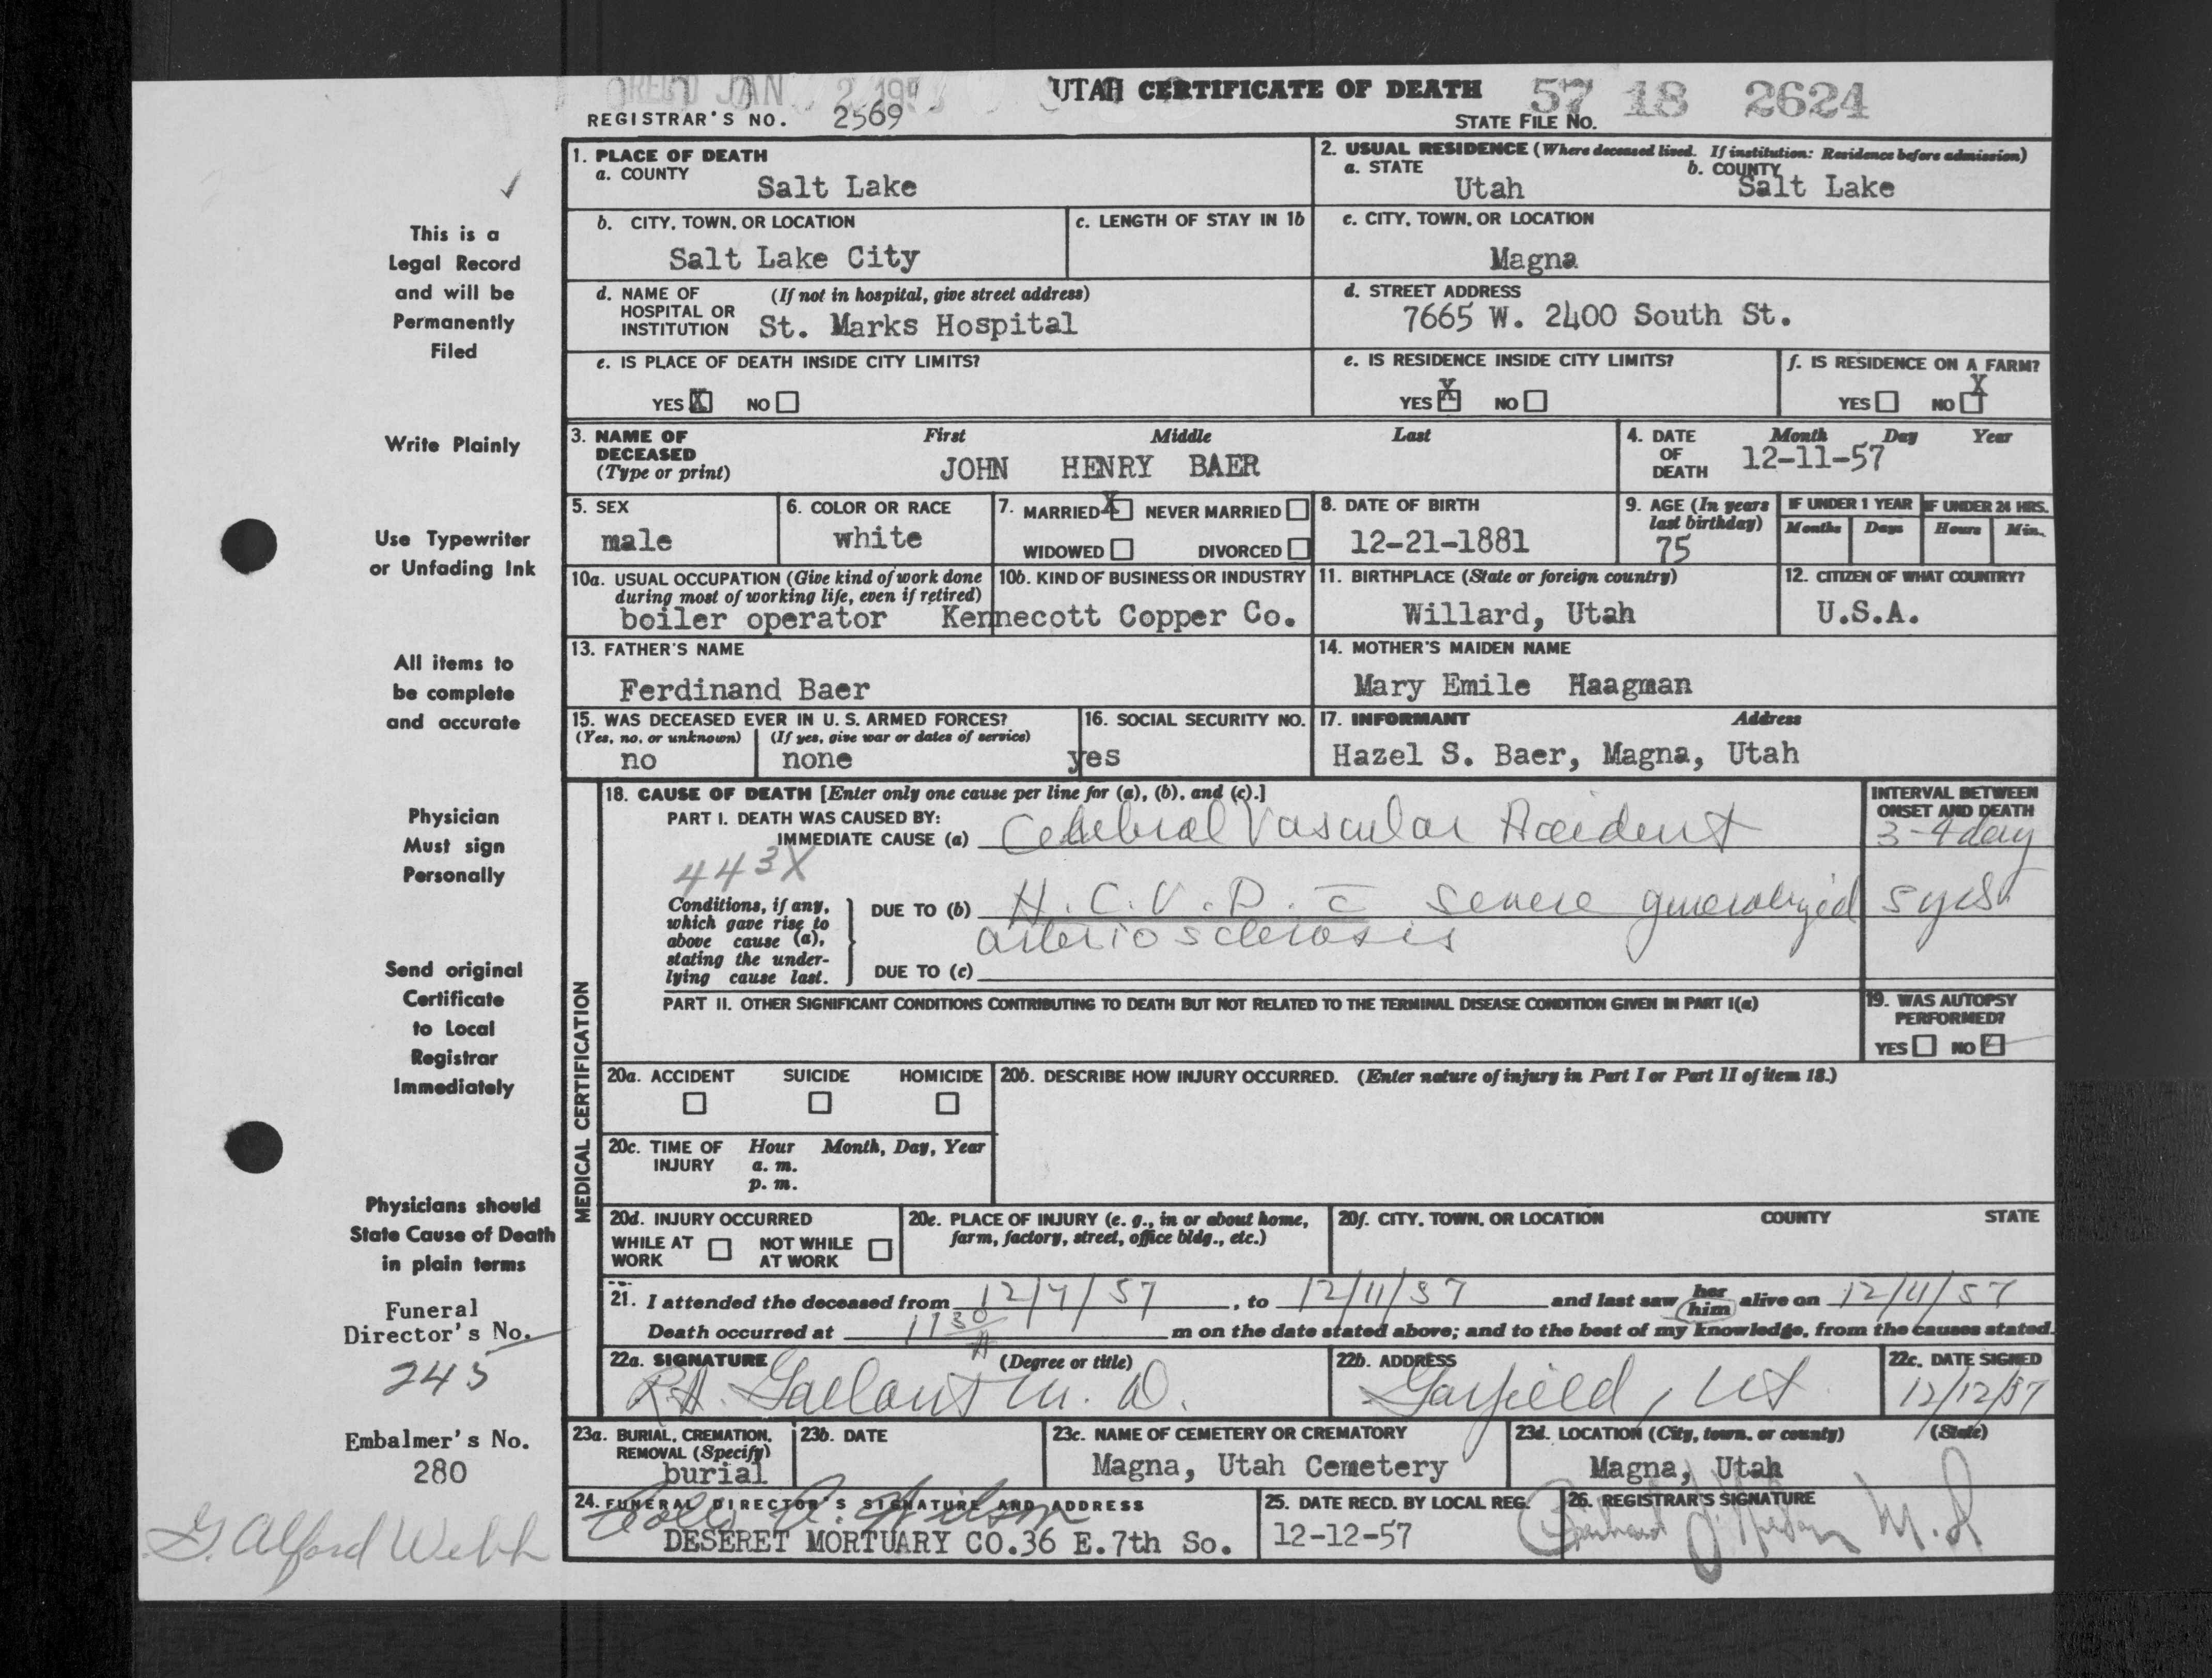 REC'D JAN 2 195
UTAH CERTIFICATE OF DEATH
57 18 2624
REGISTRAR'S NO. 2569
STATE FILE NO.
1. PLACE OF DEATH
a. COUNTY
Salt Lake
2. USUAL RESIDENCE (Where deceased lived. If institution: Residence before admission)
a. STATE
Utah
b. COUNTY
Salt Lake
b. CITY, TOWN, OR LOCATION
Salt Lake City
c. LENGTH OF STAY IN 1b
c. CITY, TOWN, OR LOCATION
Magna
d. NAME OF (If not in hospital, give street address)
HOSPITAL OR
INSTITUTION St. Marks Hospital
d. STREET ADDRESS
7665 W. 2400 South St.
e. IS PLACE OF DEATH INSIDE CITY LIMITS?
YES X NO
e. IS RESIDENCE INSIDE CITY LIMITS?
YES X NO
f. IS RESIDENCE ON A FARM?
YES NO X
3. NAME OF First Middle Last
DECEASED
(Type or print) JOHN HENRY BAER
4. DATE Month Day Year
OF
DEATH 12-11-57
5. SEX
male
6. COLOR OR RACE
white
7. MARRIED X NEVER MARRIED
WIDOWED DIVORCED
8. DATE OF BIRTH
12-21-1881
9. AGE (In years
last birthday)
75
IF UNDER 1 YEAR
Months Days
IF UNDER 24 HRS.
Hours Min.
10a. USUAL OCCUPATION (Give kind of work done
during most of working life, even if retired)
boiler operator
10b. KIND OF BUSINESS OR INDUSTRY
Kennecott Copper Co.
11. BIRTHPLACE (State or foreign country)
Willard, Utah
12. CITIZEN OF WHAT COUNTRY?
U.S.A.
13. FATHER'S NAME
Ferdinand Baer
14. MOTHER'S MAIDEN NAME
Mary Emile Haagman
15. WAS DECEASED EVER IN U. S. ARMED FORCES?
(Yes, no, or unknown) (If yes, give war or dates of service)
no none
16. SOCIAL SECURITY NO.
yes
17. INFORMANT Address
Hazel S. Baer, Magna, Utah
MEDICAL CERTIFICATION
18. CAUSE OF DEATH [Enter only one cause per line for (a), (b), and (c).]
PART I. DEATH WAS CAUSED BY:
IMMEDIATE CAUSE (a) Cerebral Vascular Accident
INTERVAL BETWEEN
ONSET AND DEATH
3-4 day
443X
Conditions, if any,
which gave rise to
above cause (a),
stating the under-
lying cause last.
DUE TO (b) H.C.V.D. c̄ severe generalized
arteriosclerosis
5 yrs+
DUE TO (c)
PART II. OTHER SIGNIFICANT CONDITIONS CONTRIBUTING TO DEATH BUT NOT RELATED TO THE TERMINAL DISEASE CONDITION GIVEN IN PART I(a)
19. WAS AUTOPSY
PERFORMED?
YES NO
20a. ACCIDENT SUICIDE HOMICIDE
20b. DESCRIBE HOW INJURY OCCURRED. (Enter nature of injury in Part I or Part II of item 18.)
20c. TIME OF Hour Month, Day, Year
INJURY a. m.
p. m.
20d. INJURY OCCURRED
WHILE AT NOT WHILE
WORK AT WORK
20e. PLACE OF INJURY (e. g., in or about home,
farm, factory, street, office bldg., etc.)
20f. CITY, TOWN, OR LOCATION COUNTY STATE
21. I attended the deceased from 12/7/57, to 12/11/57 and last saw her him alive on 12/11/57
Death occurred at 1130 A m on the date stated above; and to the best of my knowledge, from the causes stated.
22a. SIGNATURE (Degree or title)
R.H. Gallant M. D.
22b. ADDRESS
Garfield, Ut
22c. DATE SIGNED
12/12/57
23a. BURIAL, CREMATION,
REMOVAL (Specify)
burial
23b. DATE
23c. NAME OF CEMETERY OR CREMATORY
Magna, Utah Cemetery
23d. LOCATION (City, town, or county) (State)
Magna, Utah
24. FUNERAL DIRECTOR'S SIGNATURE AND ADDRESS
Wilson
DESERET MORTUARY CO. 36 E. 7th So.
25. DATE RECD. BY LOCAL REG.
12-12-57
26. REGISTRAR'S SIGNATURE
M.D.
This is a
Legal Record
and will be
Permanently
Filed
Write Plainly
Use Typewriter
or Unfading Ink
All items to
be complete
and accurate
Physician
Must sign
Personally
Send original
Certificate
to Local
Registrar
Immediately
Physicians should
State Cause of Death
in plain terms
Funeral
Director's No.
245
Embalmer's No.
280
G. Alford Webb